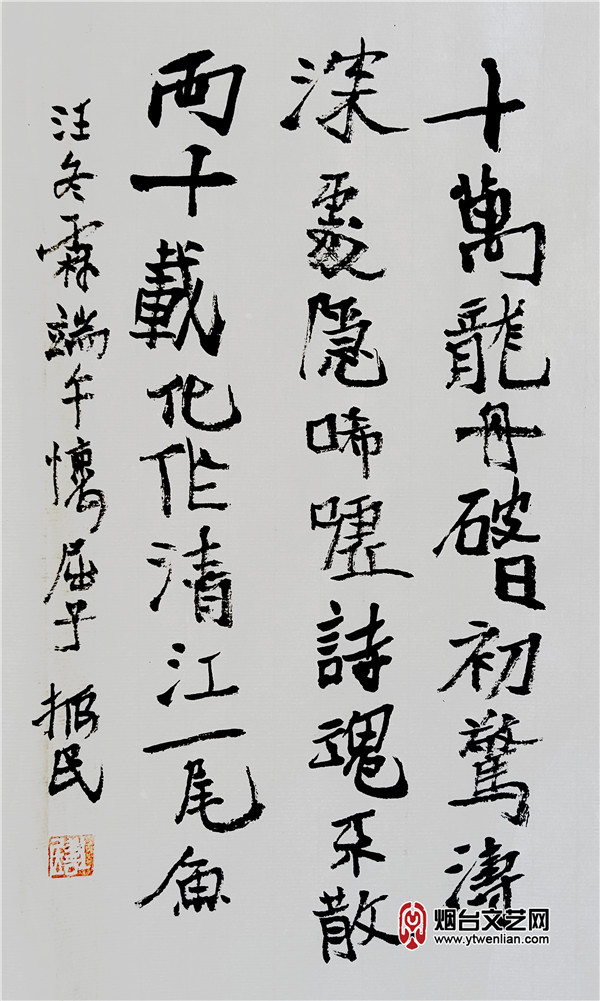 十萬龍舟破日初驚濤
深處隱唏噓詩魂不散
两十載化作清江一尾魚
汪冬霖端午懷屈子 振民
烟台文艺网
www.ytwenlian.com